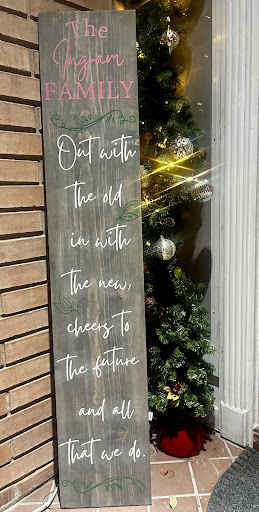 The
Ingram
FAMILY
Out with
the old
in with
the new,
cheers to
the future
and all
that we do.